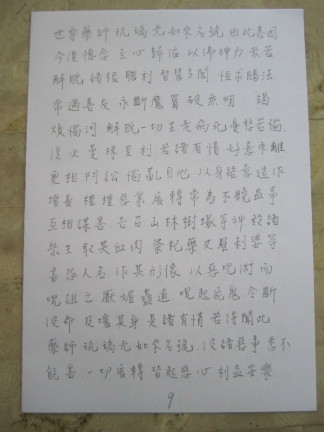 世尊藥師琉璃光如來名號 由此善因
今復憶念 至心歸依 以佛神力 眾苦
解脫 諸根 聰利 智慧多聞 恆求勝法
常遇善友 永斷魔罥 破無明 竭
煩惱河 解脫一切生老病死憂愁苦惱
復次曼殊室利 若諸有情 好喜乖離
更相鬥訟 惱亂自他 以身語意 造作
增長 種種惡業 展轉常為不饒益事
互相謀害 告召山林樹塚等神 殺諸
眾生 取其血肉 祭祀藥叉羅剎娑等
書怨人名 作其形像 以惡呪術 而
呪詛之 厭媚蠱道 呪起屍鬼 令斷
彼命 及壞其身 是諸有情 若得聞此
藥師琉璃光如來名號 彼諸惡事悉不
能害 一切展轉皆起慈心 利益安樂
9